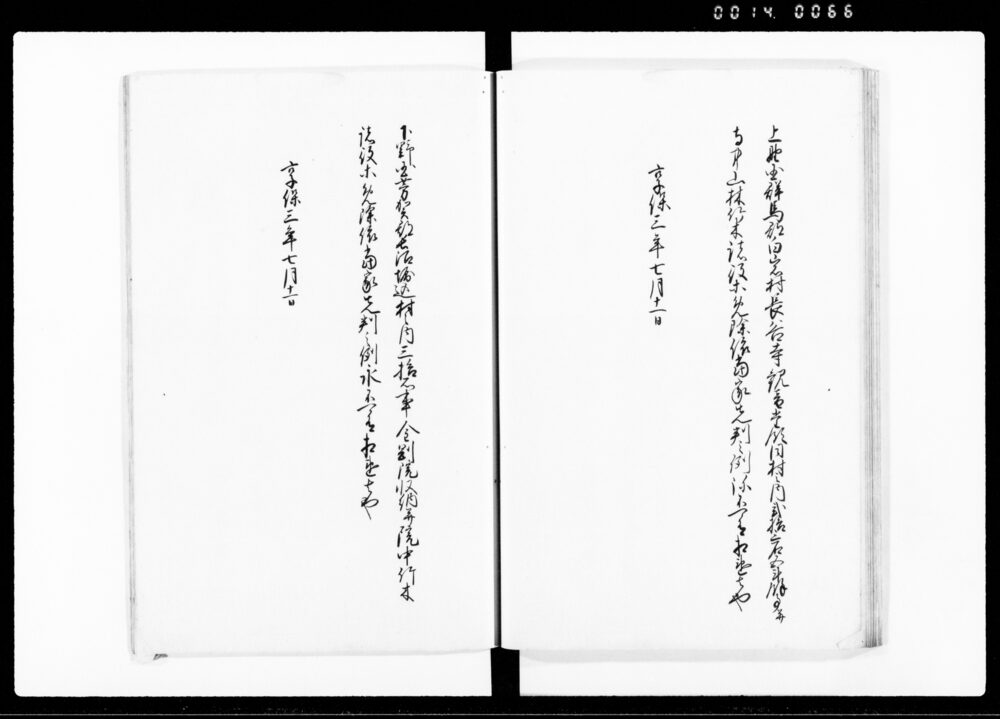 0014 0066
上野国群馬郡白岩村長谷寺観音堂領同村之内弐拾石余事并
寺中山林竹木諸役等免除依当家先判之例弥不可有相違者也
享保三年七月十一日
下野国芳賀郡 村之内三拾石事金剛院収納并院中竹木
諸役等免除依当家先判之例永不可有相違者也
享保三年七月十一日